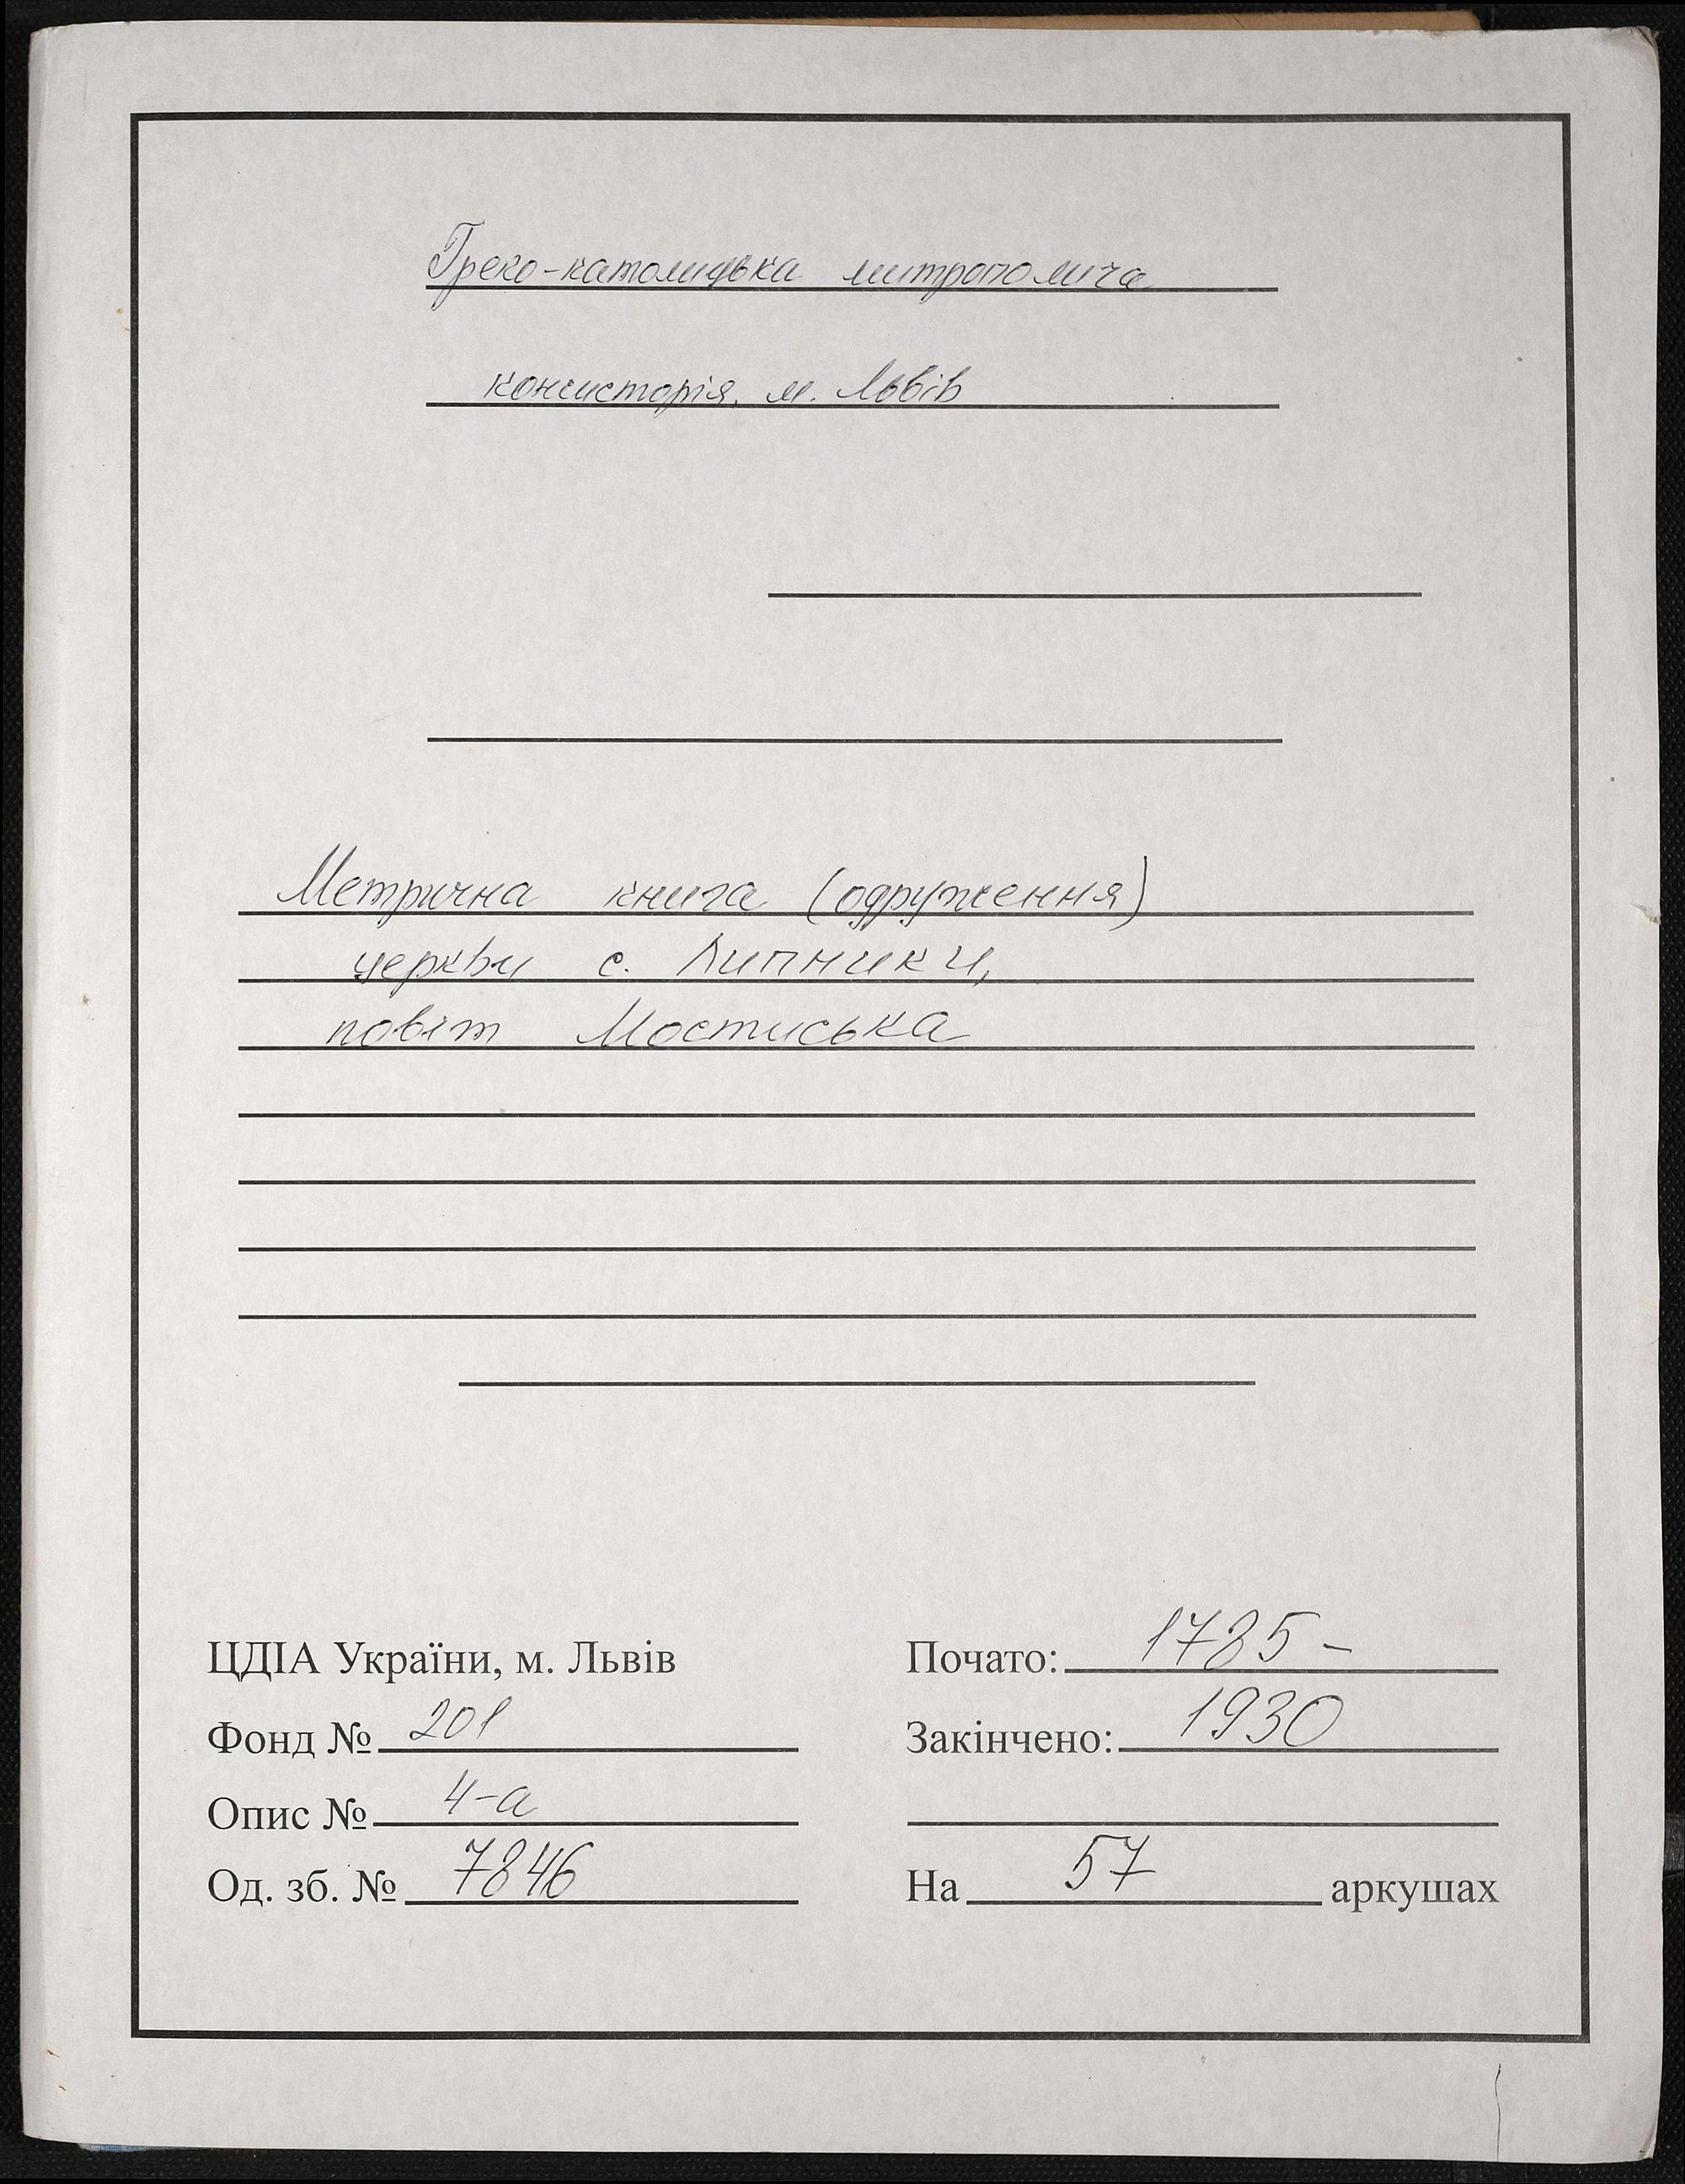 Греко-католицька митрополича
консисторія, м. Львів
Метрична книга (одруження)
церкви с. Липники,
повіт Мостиська
ЦДІА України, м. Львів
Фонд № 201
Опис № 4-а
Од. зб. № 7846
Почато: 1785 -
Закінчено: 1930
На 57 аркушах